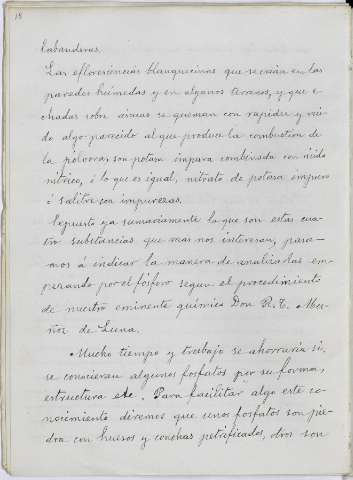 18
labanderas.
Las eflorescencias blanquecinas que se crian en las
paredes húmedas y en algunos terrenos, y que e-
chadas sobre ascuas se queman con rapidez y rui-
do algo parecido al que produce la combustion de
la pólvora; son potasa impura combinada con ácido
nítrico, ó lo que es igual, nitrato de potasa impuro
ó salitre con impurezas.
Expuesto ya sumariamente lo que son estas cua-
tro substancias que mas nos interesan, pasa-
mos á indicar la manera de analizarlas em-
pezando por el fósforo segun el procedimiento
de nuestro eminente químico Don R. T. Mu-
ñoz de Luna.
Mucho tiempo y trabajo se ahorraría si
se conocieran algunos fosfatos por su forma,
estructura etc. Para facilitar algo este co-
nocimiento diremos que unos fosfatos son pie-
dra con huesos y conchas petrificados, otros son